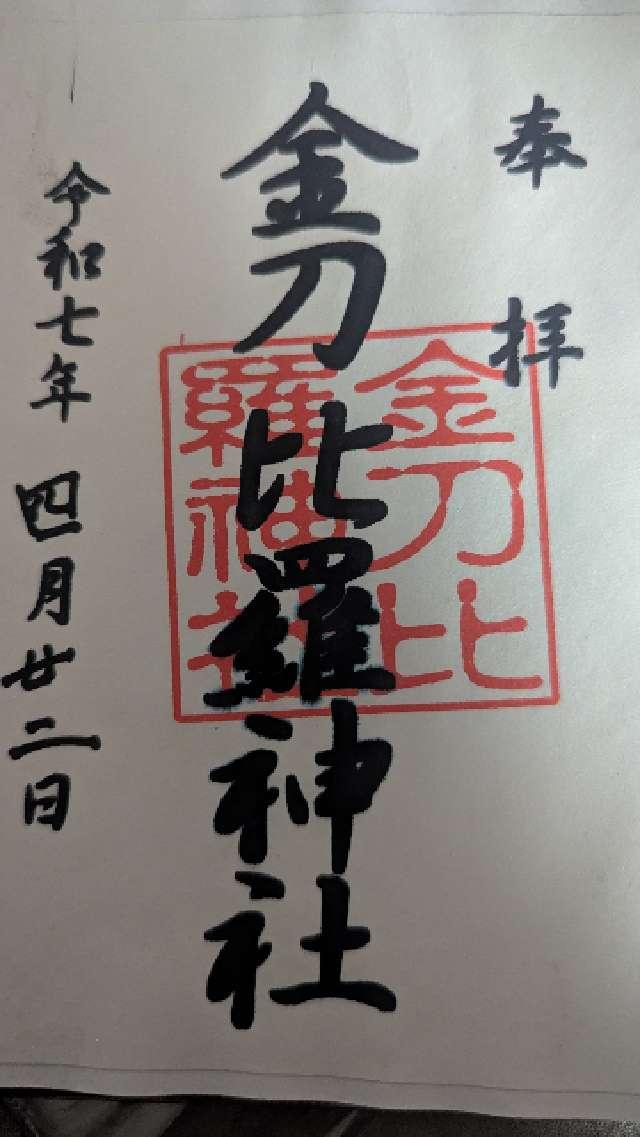 奉拝
金刀比羅神社
金刀比
羅神社
令和七年四月廿二日